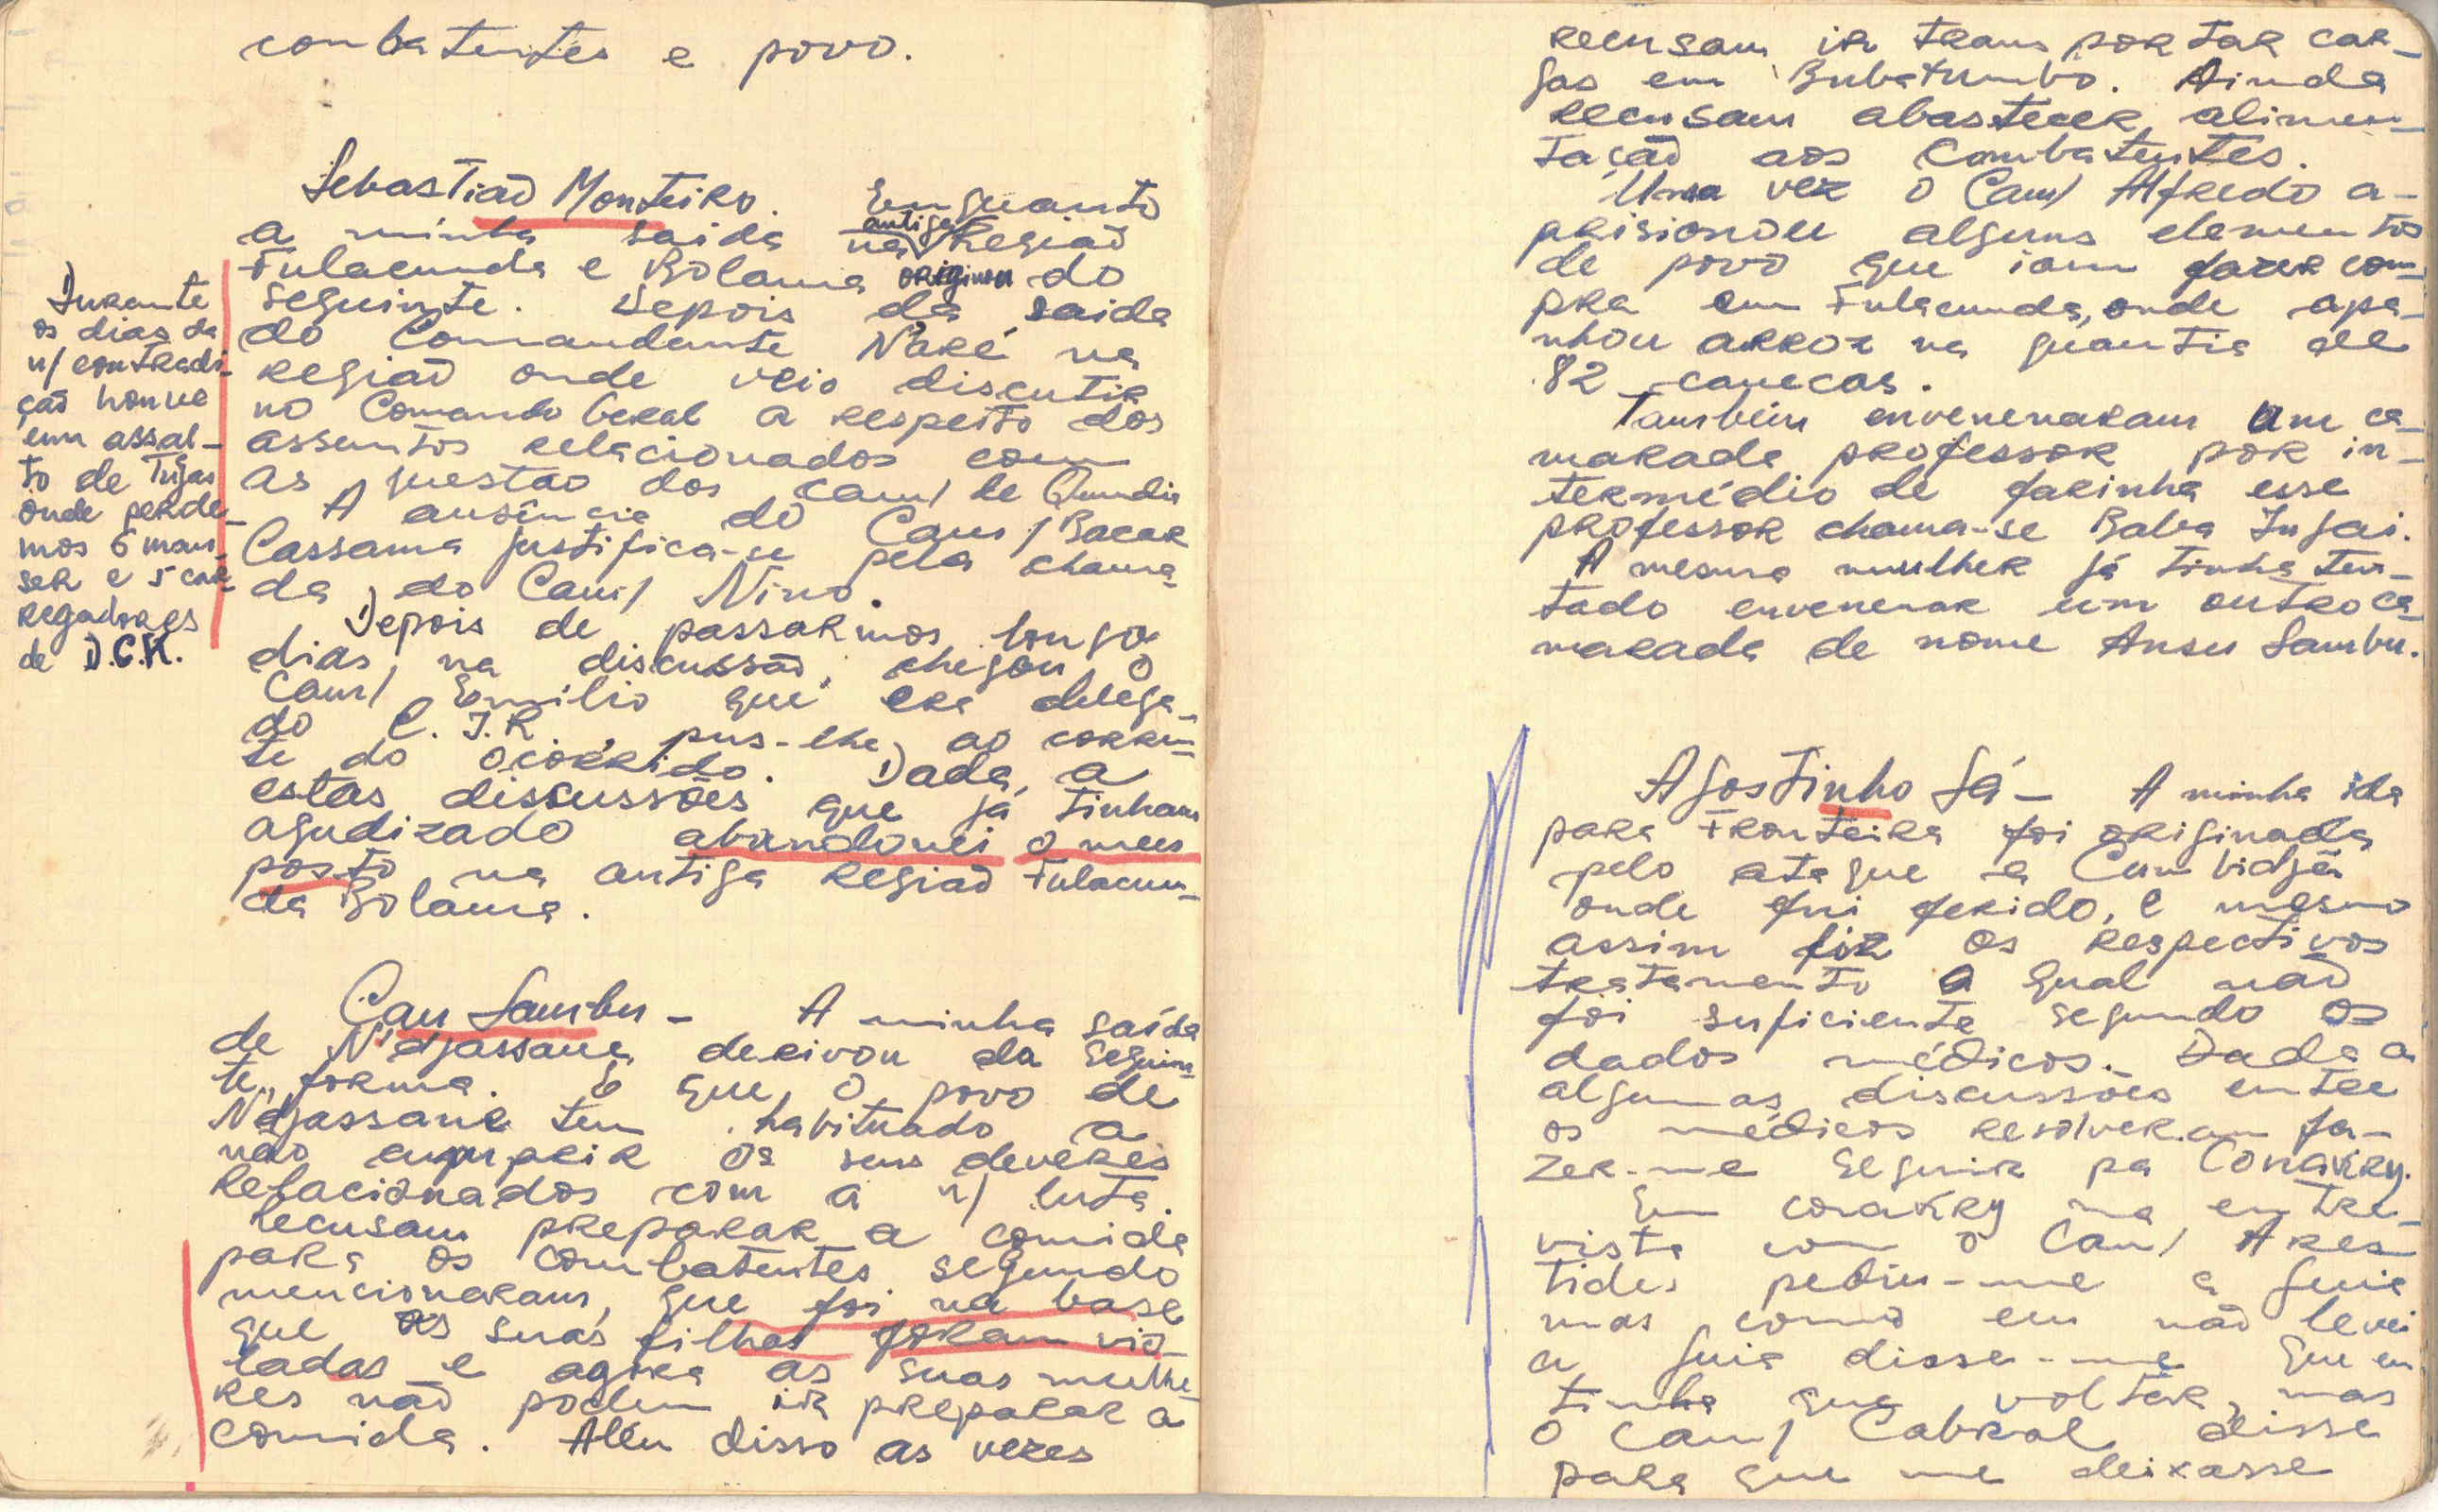 combatentes e povo.
Sebastião Monteiro. Enquanto
a minha saida na antiga Região
Fulacunda e Bolama originou do
seguinte. Depois da saida
do Comandante N'aré na
Região onde veio discutir
no Comando Geral a respeito dos
assuntos relacionados com
as questão dos Cam/ de
A ausência do Cam/ Bacar
Cassama justifica-se pela chama-
da do Cam/ Nino.
Depois de passarmos longo
dias, na discussão, chegou o
Cam/ Emilio que era delega-
do C.I.R., pus-lhe ao corren-
te do ocorrido. Dada, a
estas discussões que já tinham
agudizado abandonei o meu
posto na antiga Região Fulacun-
da Bolama.
Durante
os dias da
n/ contradi-
ção houve
um assal-
to de Tugas
onde perde-
mos 6 mau-
ser e 5 car-
regadores
de D.C.K.
Can Sambu - A minha saída
de N'djassane derivou da seguin-
te, forma. É que, o povo de
N'djassane tem habituado a
não cumprir os seus deveres
relacionados com a n/ luta.
Recusam preparar a comida
para os combatentes segundo
mencionaram, que foi na base
que as suas filhas foram vio-
ladas e agora as suas mulhe-
res não podem ir preparar a
comida. Além disso as vezes
recusam ir transportar car-
gas em Bubatumbo. Ainda
recusam abastecer alimen-
tação aos combatentes.
Uma vez o Cam/ Alfredo a-
prisionou alguns elementos
de povo que iam fazer com-
pra em Fulacunda, onde apa-
nhou arroz na quantia de
82 canecas.
Também envenenaram um ca-
marada professor por in-
termédio de farinha esse
professor chama-se Baba Injai.
A mesma mulher já tinha ten-
tado envenenar um outro ca-
marada de nome Ansu Sambu.
Agostinho Sá - A minha ida
para Fronteira foi originada
pelo ataque a Cumbidjã
onde fui ferido, e mesmo
assim fiz os respectivos
tratamento o qual não
foi suficiente segundo os
dados médicos. Dada a
algumas discussões entre
os médicos resolveram fa-
zer-me seguir pa Conakry.
Em conakry na entre-
vista com o Cam/ Ares-
tides pediu-me a guia
mas como eu não levei
a guia disse-me que eu
tinha que voltar, mas
o Cam/ Cabral disse
para que me deixasse